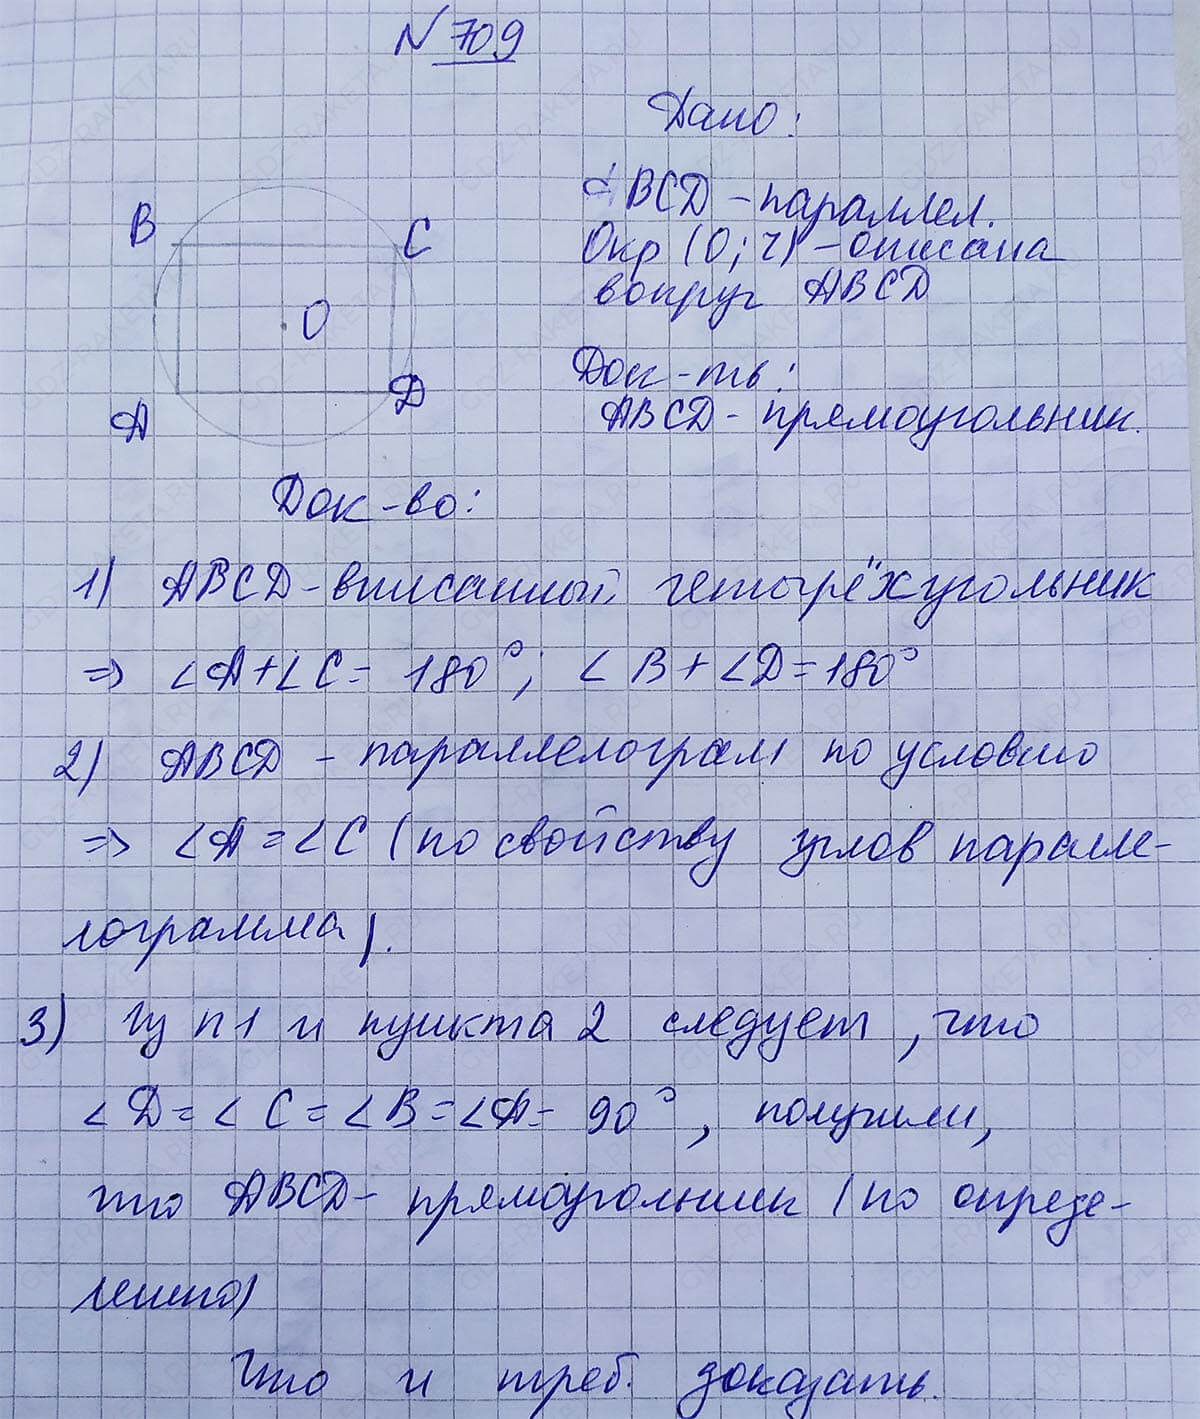 N 709
Дано:
ABCD - параллел.
B
C
Окр (O; r) - описана
вокруг ABCD
O
Док-ть:
A
D
ABCD - прямоугольник.
Док-во:
1) ABCD - вписанный четырёхугольник
=> ∠A+∠C= 180°; ∠B+∠D=180°
2) ABCD - параллелограм по условию
=> ∠A=∠C (по свойству углов паралле-
лограмма).
3) Из п1 и пункта 2 следует, что
∠D=∠C=∠B=∠A= 90°, получили,
что ABCD - прямоугольник (по опреде-
лению)
Что и треб. доказать.